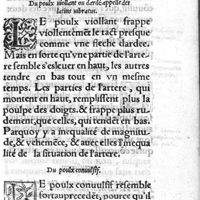 Du poulx violant ou dardé appellé des
latins vibratus.
LE poulx viollant frappe
viollentemēt le tact presque
comme vne fleche dardee.
Mais en sorte qu'vne partie de l'arte-
re semble s'esleuer en haut, les autres
tendent en bas tout en vn mesme
temps. Les parties de l'artere, qui
montent en haut, remplissent plus la
poulpe des doigts, & frappe plus ru-
dement, que celles, qui tendēt en bas.
Parquoy y a inequalité de magnitu-
de, & vehemēce, & auec elles l'inequa-
lité de la situation de l'artere.
Du poulx conuulsif.
LE poulx conuulsif resemble
fort au precedēt, pource qu'il